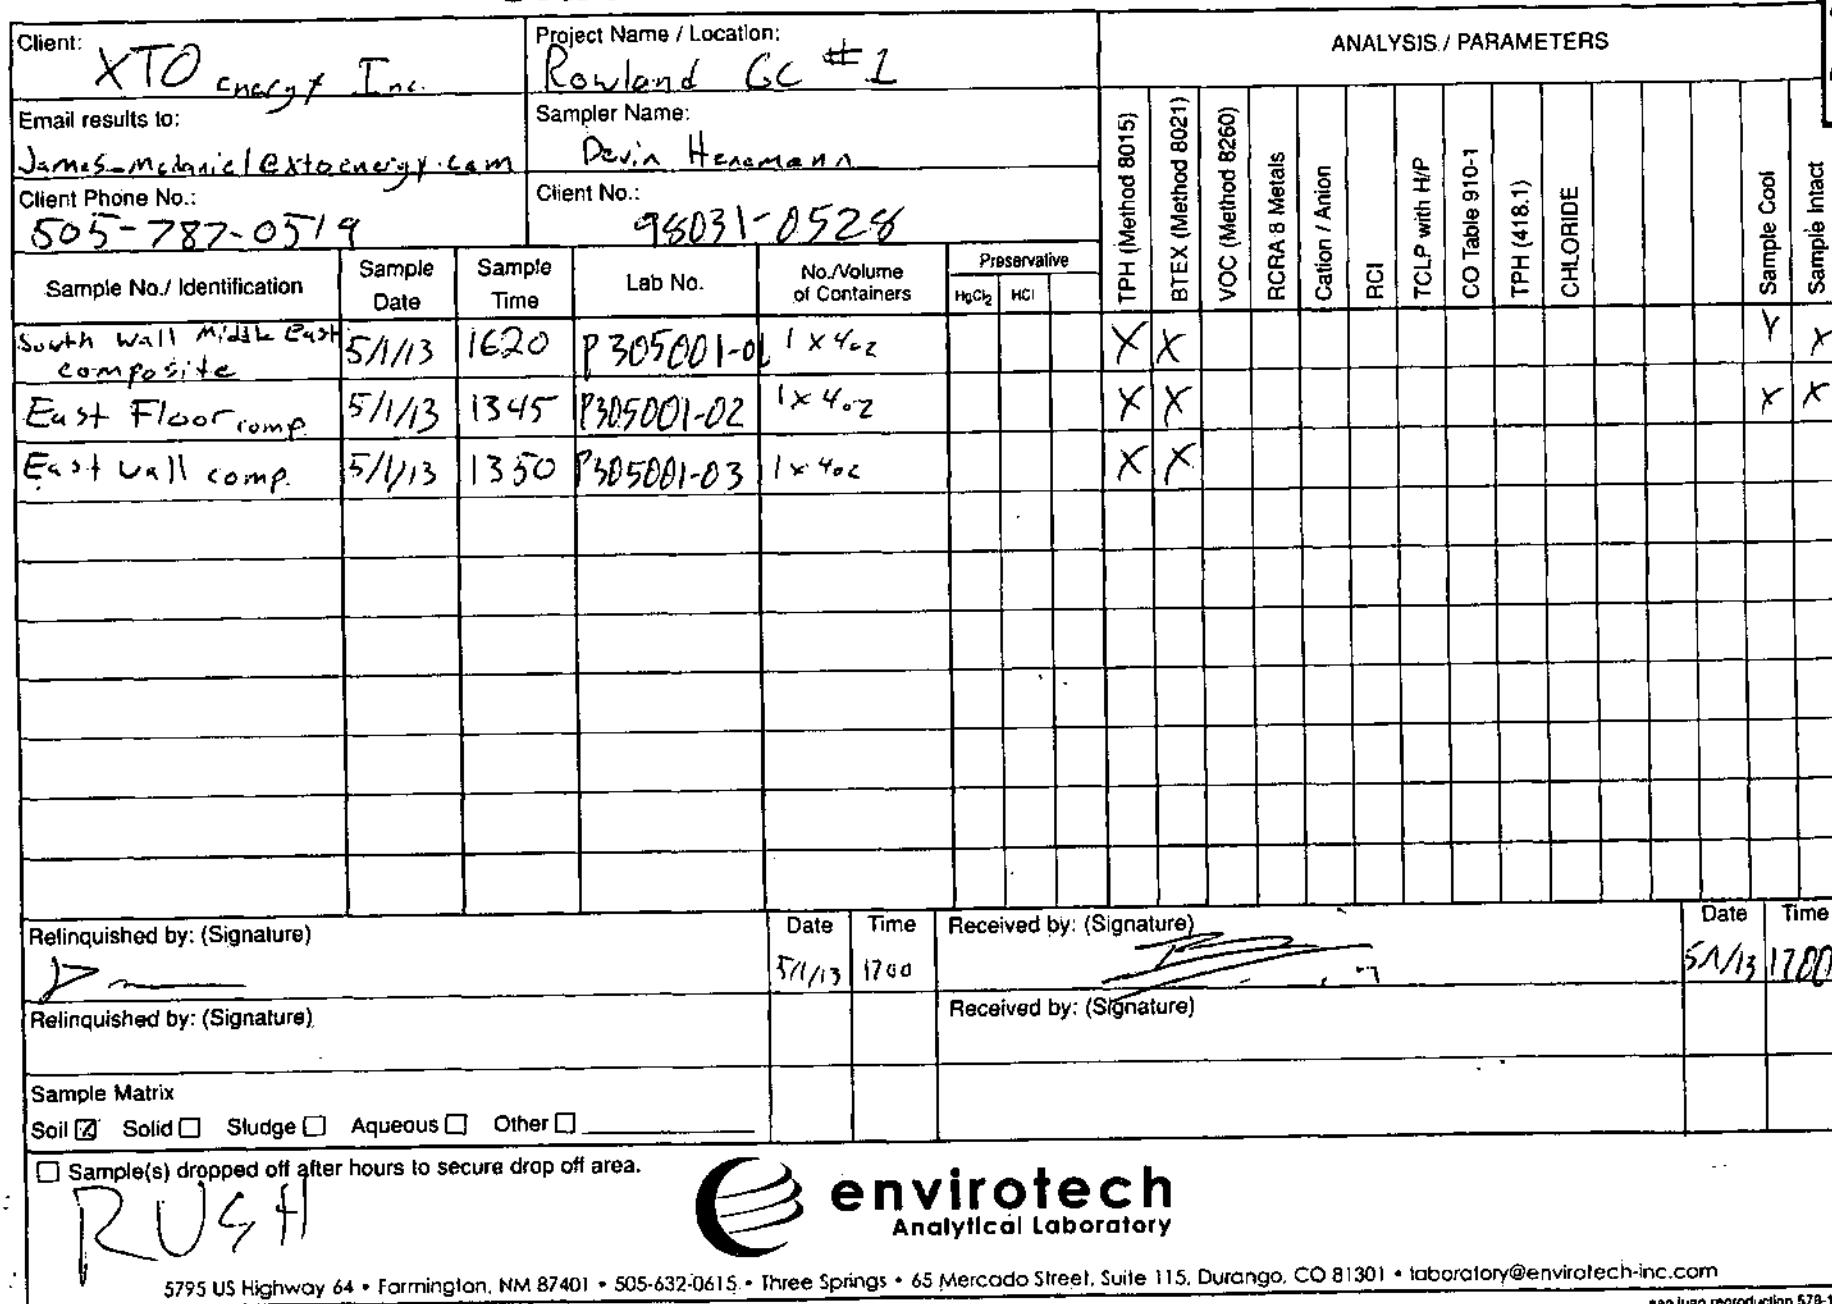 Client: XTO Energy Inc.
Project Name / Location: Rowland GC #1
ANALYSIS / PARAMETERS
Email results to: James_mcdaniel@xtoenergy.com
Sampler Name: Devin Hencmann
Client Phone No.: 505-787-0519
Client No.: 98031-0528
Sample No./ Identification
Sample Date
Sample Time
Lab No.
No./Volume of Containers
Preservative
HgCl2 HCl
TPH (Method 8015)
BTEX (Method 8021)
VOC (Method 8260)
RCRA 8 Metals
Cation / Anion
RCI
TCLP with H/P
CO Table 910-1
TPH (418.1)
CHLORIDE
Sample Cool
Sample Intact
South Wall Middle East composite 5/1/13 1620 P305001-01 1 x 4oz X X Y X
East Floor comp. 5/1/13 1345 P305001-02 1 x 4oz X X X X
East Wall comp. 5/1/13 1350 P305001-03 1 x 4oz X X
Relinquished by: (Signature) Date Time Received by: (Signature) Date Time
5/1/13 1700 5/1/13 1700
Relinquished by: (Signature) Received by: (Signature)
Sample Matrix
Soil ☑ Solid ☐ Sludge ☐ Aqueous ☐ Other ☐
☐ Sample(s) dropped off after hours to secure drop off area.
RUSH
envirotech
Analytical Laboratory
5795 US Highway 64 • Farmington, NM 87401 • 505-632-0615 • Three Springs • 65 Mercado Street, Suite 115, Durango, CO 81301 • laboratory@envirotech-inc.com
san juan reproduction 578-1